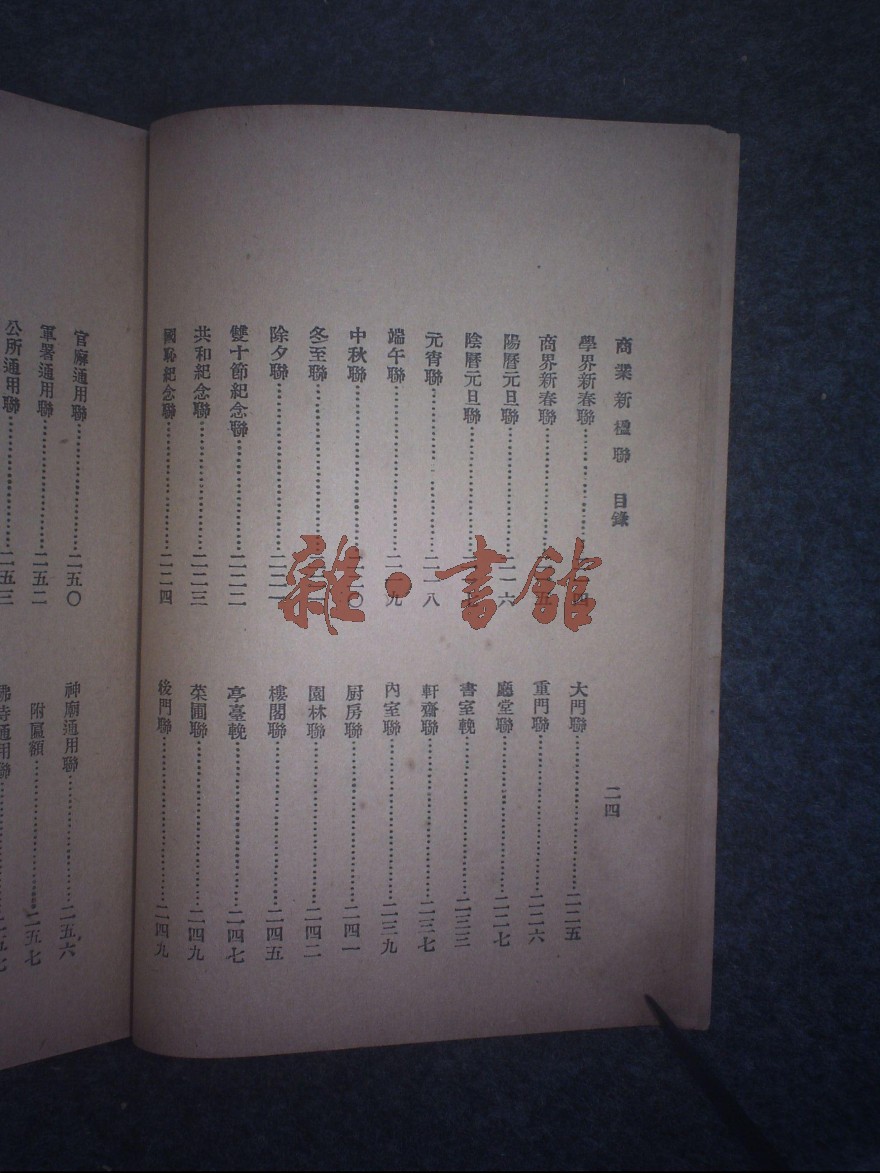 商業新楹聯 目錄
二四
學界新春聯……四
商界新春聯……五
陽曆元旦聯……二一六
陰曆元旦聯……
元宵聯……二一八
端午聯……九
中秋聯……二二〇
冬至聯……
除夕聯……二二一
雙十節紀念聯……二二二
共和紀念聯……二二三
國恥紀念聯……二二四
大門聯……二二五
重門聯……二二六
廳堂聯……二二七
書室輓……二三三
軒齋聯……二三七
內室聯……二三九
厨房聯……二四一
園林聯……二四二
樓閣聯……二四五
亭臺輓……二四七
菜圃聯……二四九
後門聯……二四九
官廨通用聯……二五〇
軍署通用聯……二五二
公所通用聯……二五三
神廟通用聯……二五六
附匾額……二五七
佛寺通用聯……二五七
雜·書館